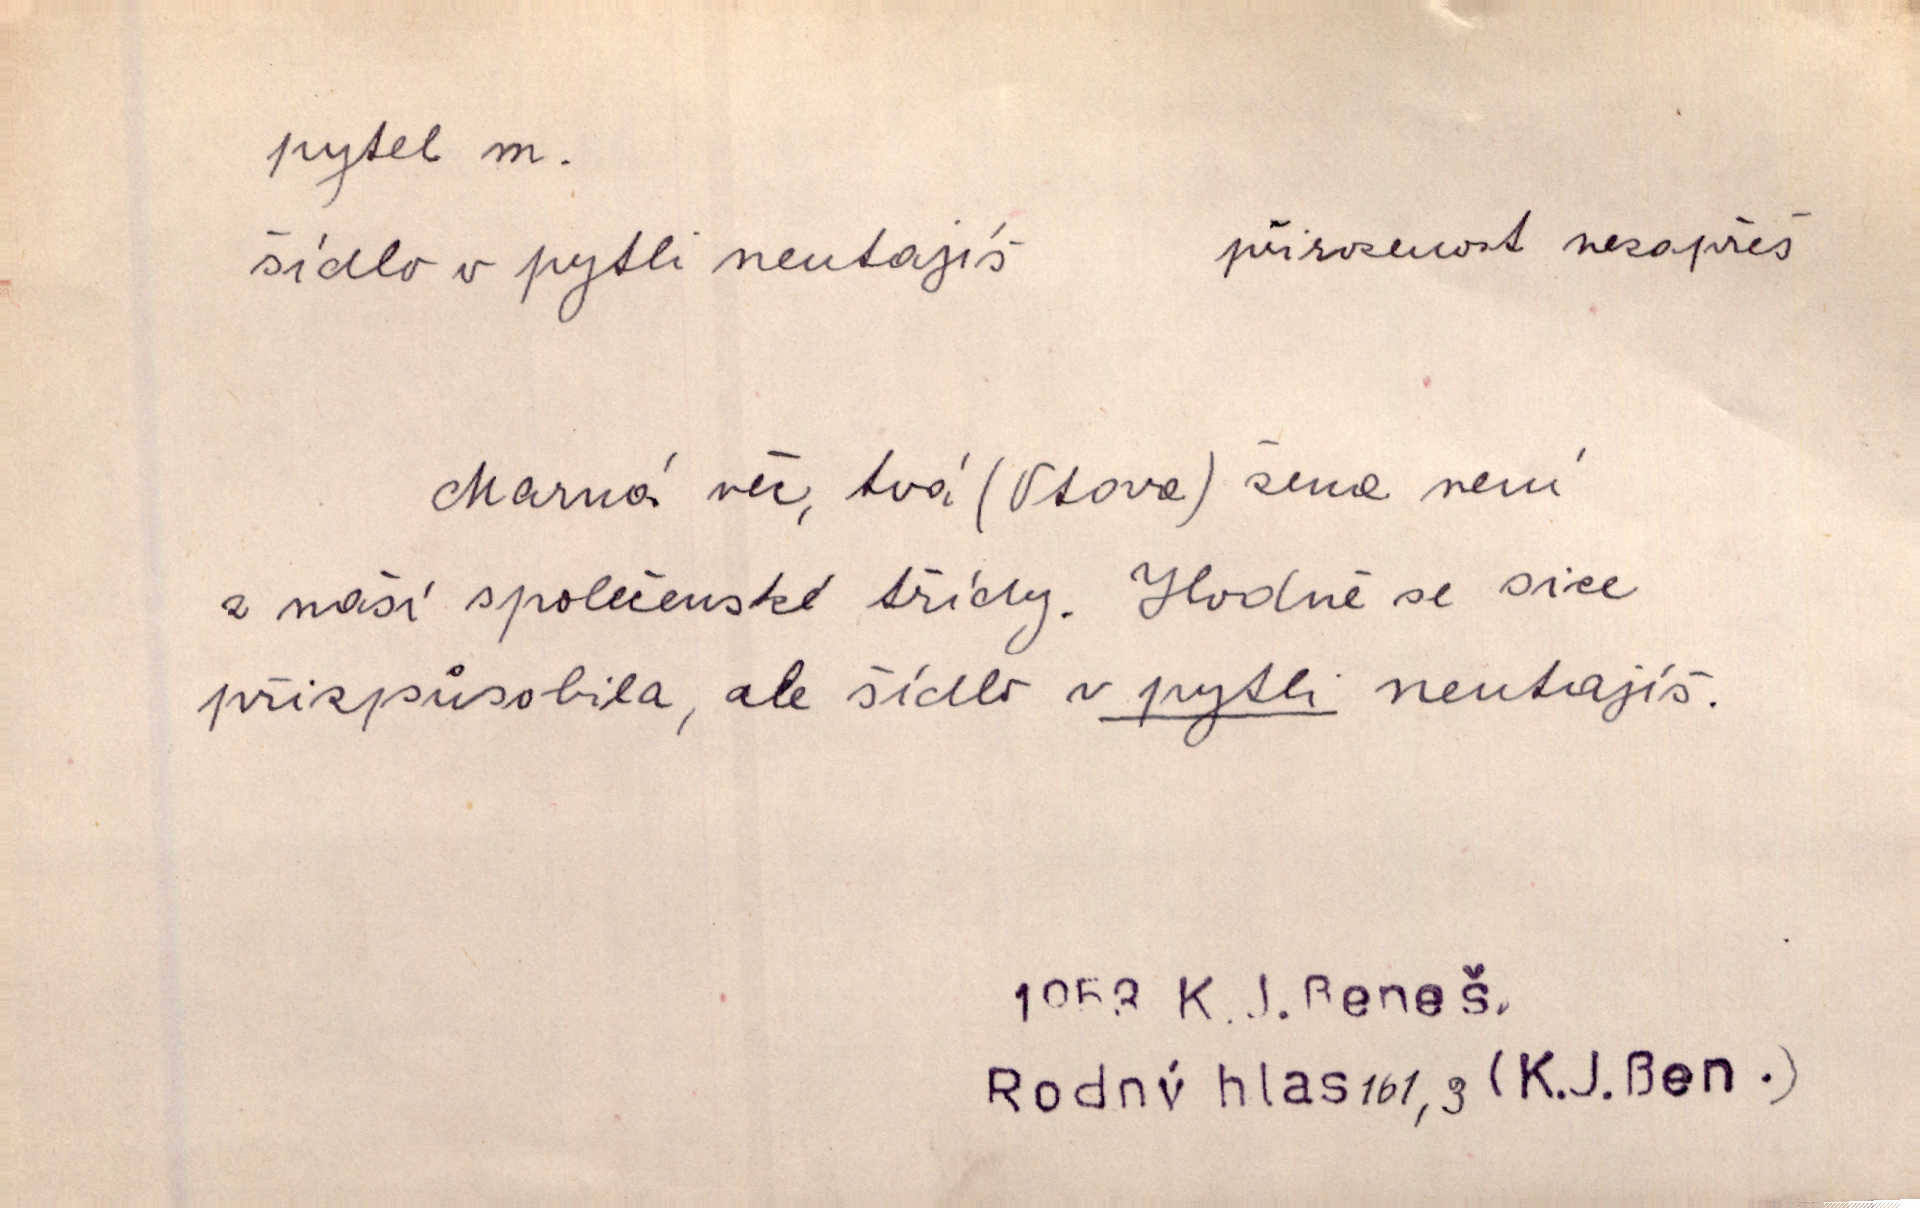 pytel m.
šídlo v pytli neutajíš přirozenost nezapřeš
Marná věc, tvá (Otova) žena není
z naší společenské třídy. Hodně se sice
přizpůsobila, ale šídlo v pytli neutajíš.
1953 K.J. Beneš.
Rodný hlas 161,3 (K.J.Ben.)